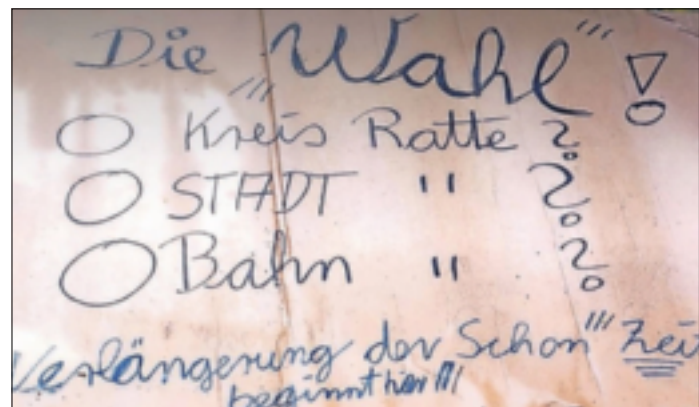 Die "Wahl" !
O Kreis Ratte ?
O STADT " ?
O Bahn " ?
Verlängerung der Schon''' Zeit
beginnt hier !!!